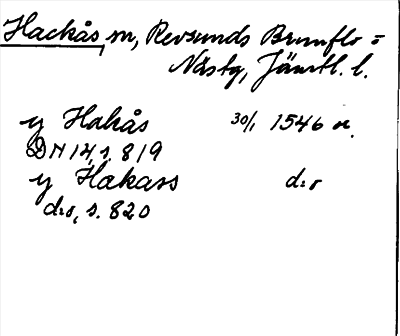 Hackås sn, Revsunds Brunflo =
Näs tg, Jämtl. l.
y Hakås 30/1 1546 or.
DN 14, s. 819
y Hakass d:o
d:o, s. 820